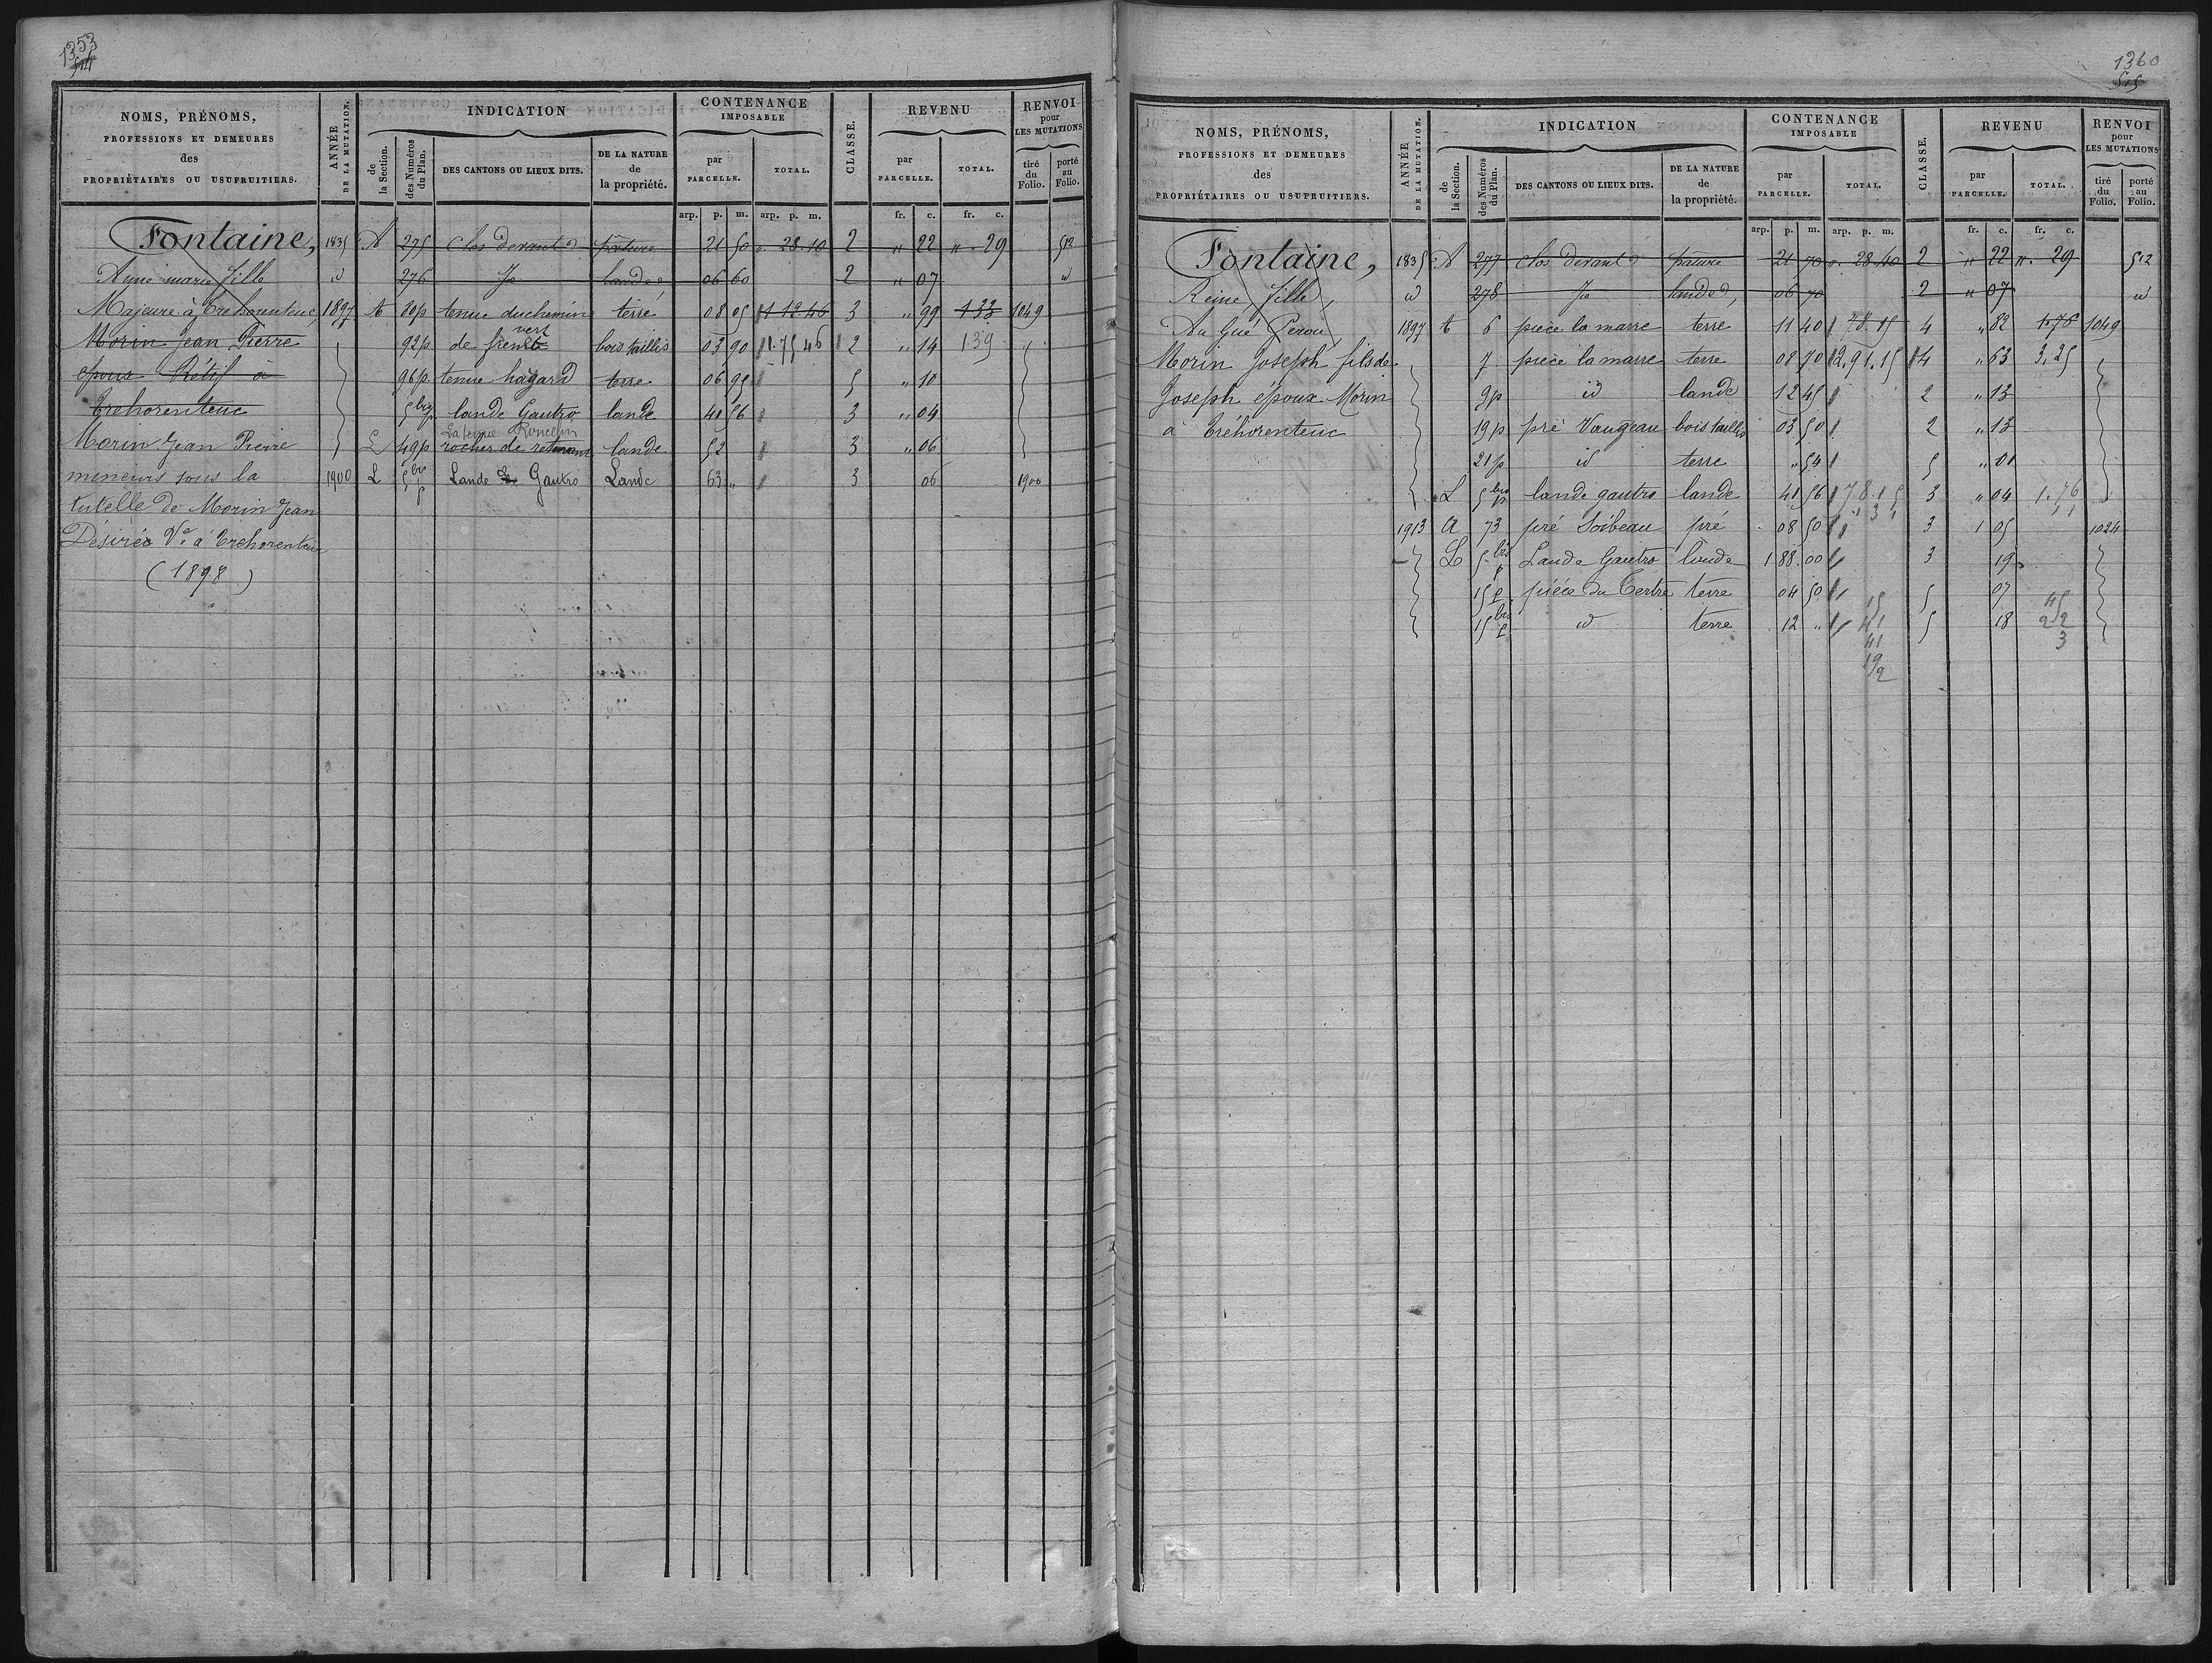 1353
514
NOMS, PRÉNOMS,
PROFESSIONS ET DEMEURES
des
PROPRIÉTAIRES OU USUFRUITIERS.
ANNÉE
DE LA MUTATION.
INDICATION
de
la Section.
des Numéros
du Plan.
DES CANTONS OU LIEUX DITS.
DE LA NATURE
de
la propriété.
CONTENANCE
IMPOSABLE
par
PARCELLE.
TOTAL.
CLASSE.
REVENU
par
PARCELLE.
TOTAL.
RENVOI
pour
LES MUTATIONS
tiré
du
Folio.
porté
au
Folio.
arp. p. m. arp. p. m. fr. c. fr. c.
Fontaine, 1835 A 275 Clos devant pature 21 50 " 28 10 2 " 22 " 29 512
Anne marie fille id 276 Je landes 06 60 2 " 07 id
Majeure à Trehorenteuc, 1897 A 80p tenue duchemin terre 08 05 1 12 46 3 " 99 1 33 1049
Morin Jean Pierre 92p de frene vert bois taillis 03 90 1.75 46 2 " 14 139
epoux Rétif à 96p. tenue hagard terre 06 95 5 " 10
Trehorenteuc 5 bis p lande Gautro lande 41 56 3 " 04
La tenue Roncelin
Morin Jean Pierre L 49p rocher de lande 52 3 " 06
mineurs sous la 1900 L 5 bis p Lande Gautro Lande 63 " 3 06 1900
tutelle de Morin Jean
Désirée Ve à Trehorenteuc
(1898)
1360
515
NOMS, PRÉNOMS,
PROFESSIONS ET DEMEURES
des
PROPRIÉTAIRES OU USUFRUITIERS.
ANNÉE
DE LA MUTATION.
INDICATION
de
la Section.
des Numéros
du Plan.
DES CANTONS OU LIEUX DITS.
DE LA NATURE
de
la propriété.
CONTENANCE
IMPOSABLE
par
PARCELLE.
TOTAL.
CLASSE.
REVENU
par
PARCELLE.
TOTAL.
RENVOI
pour
LES MUTATIONS
tiré
du
Folio.
porté
au
Folio.
arp. p. m. arp. p. m. fr. c. fr. c.
Fontaine, 1835 A 277 Clos devant pature 21 70 " 28 40 2 " 22 " 29 512
Reine fille, id 278 Je landes, 06 70 2 " 07 id
Au Gué Perou 1897 A 6 pièce la marre terre 11 40 78.15 4 " 82 1.76 1049
Morin Joseph fils de 7 pièce la marre terre 08 70 2.91.15 4 " 63 3.25
Joseph époux Morin 9p id lande 12 45 2 " 13
à Tréhorenteuc 19p pré Vaugeau bois taillis 03 50 2 " 13
21p id terre " 54 5 " 01
L 5 bis p lande gautro lande 41 56 78.15 3 " 04 1.76
1913 A 73 pré Soibeau pré 08 50 3 1 05 1024
L 5 bis p Lande Gautro lande 1 88.00 3 19
15 p pièce du Tertre terre 04 50 5 07
15 bis p id terre 12 " 5 18